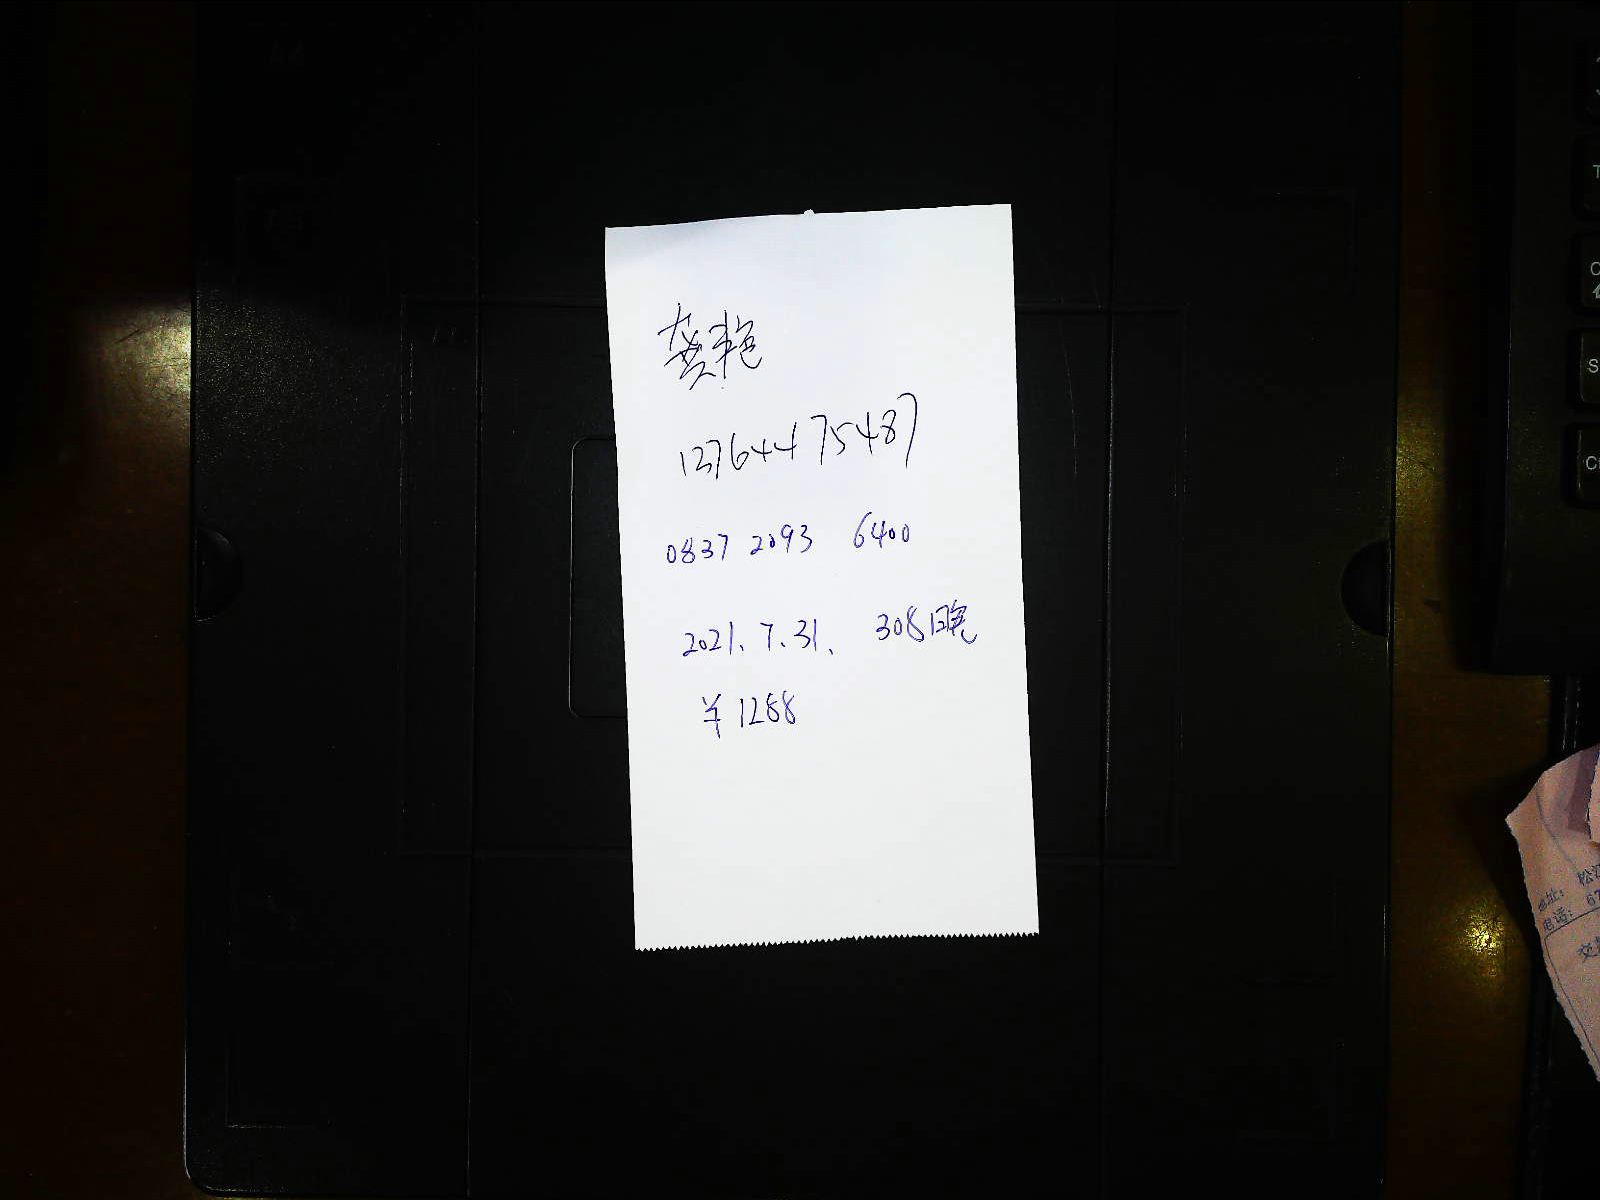 龚艳
13764475487
0837 2093 6400
2021.7.31. 308晚
¥1288
地址: 松
电话: 67
交